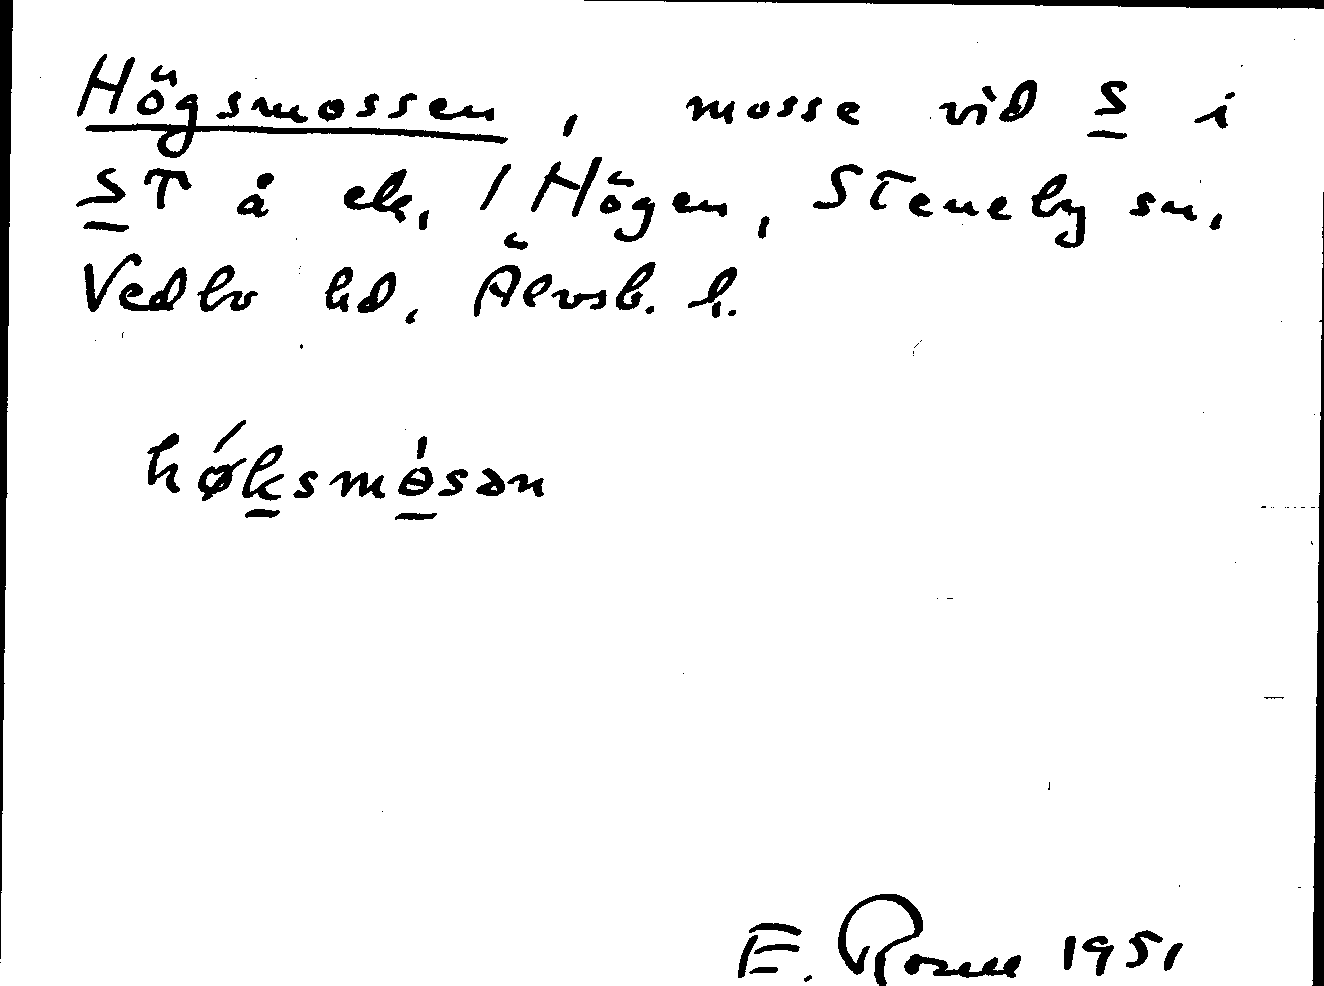 Högsmossen, mosse vid S i
ST å ek. 1 Högen, Steneby sn.
Vedbo hd. Älvsb. l.
hǿksmɵ̀sən
E. Rosell 1951